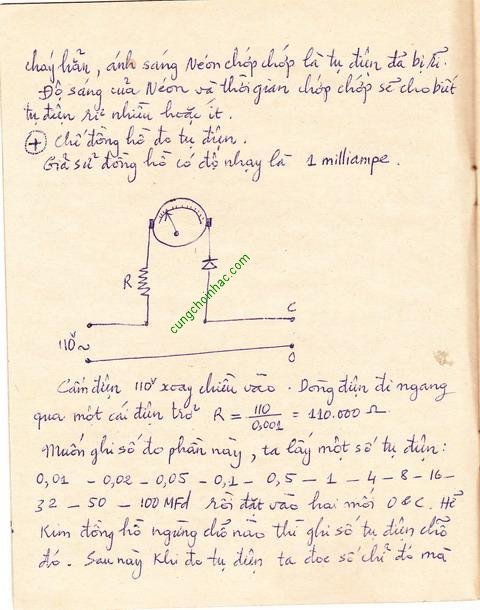 cháy hẳn, ánh sáng Néon chớp chớp là tụ điện đã bị rỉ.
Độ sáng của Néon và thời gian chớp chớp sẽ cho biết
tụ điện rỉ nhiều hoặc ít.
+ Chế đồng hồ đo tụ điện.
Giả sử đồng hồ có độ nhạy là 1 milliampe.
R
C
110v ~
O
cungchoinhac.com
Cắm điện 110v xoay chiều vào. Dòng điện đi ngang
qua một cái điện trở R = 110/0,001 = 110.000 Ω
Muốn ghi số đo phần này, ta lấy một số tụ điện:
0,01 - 0,02 - 0,05 - 0,1 - 0,5 - 1 - 4 - 8 - 16 -
32 - 50 - 100 MFd rồi đặt vào hai mối O & C. Hễ
Kim đồng hồ ngừng chổ nào thì ghi số tụ điện chỗ
đó. Sau này khi đo tụ điện ta đọc số chỉ đó mà